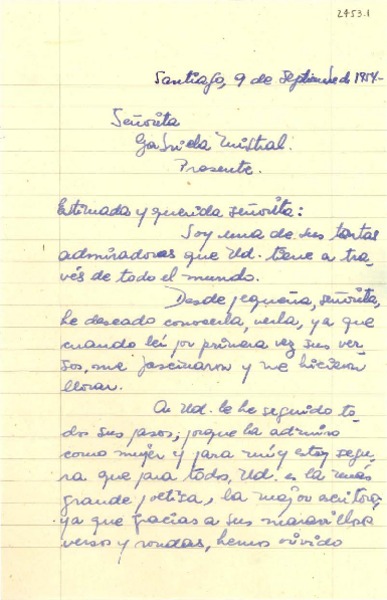 2453.1
Santiago, 9 de Septiembre de 1954.-
Señorita
Gabriela Mistral.
Presente.
Estimada y querida señorita:
Soy una de sus tantas
admiradoras que Ud. tiene a tra-
vés de todo el mundo.
Desde pequeña, señorita,
he deseado conocerla, verla, ya que
cuando leí por primera vez sus ver-
sos, me fascinaron y me hicieron
llorar.
A Ud. le he seguido to-
dos sus pasos, porque la admiro
como mujer y para mí y estoy segu-
ra que para todos, Ud. es la más
grande poetisa, la mejor escritora,
ya que gracias a sus maravillosos
versos y rondas, hemos vivido